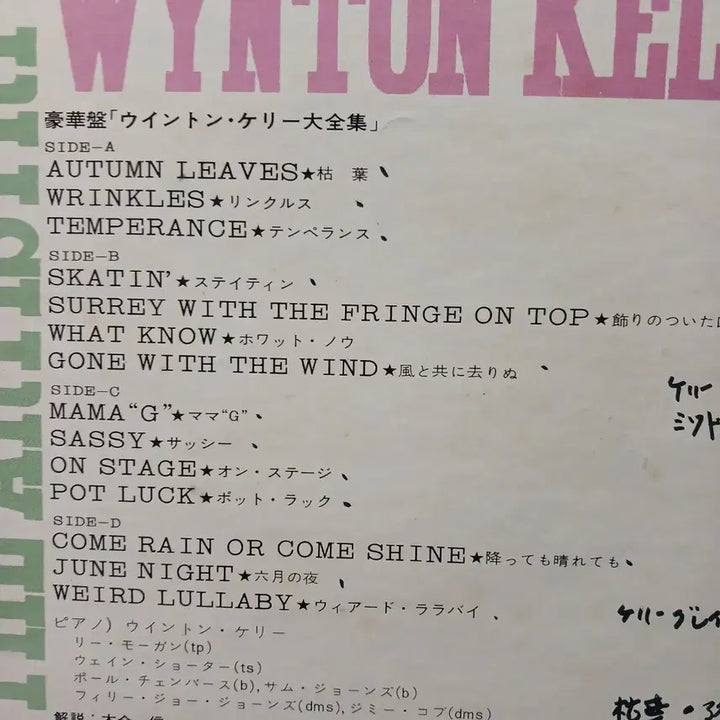 WYNTON KEL
豪華盤「ウイントン・ケリー大全集」
SIDE-A
AUTUMN LEAVES★枯 葉
WRINKLES★リンクルス
TEMPERANCE★テンペランス
SIDE-B
SKATIN'★ステイティン
SURREY WITH THE FRINGE ON TOP★飾りのついた
WHAT KNOW★ホワット・ノウ
GONE WITH THE WIND★風と共に去りぬ
SIDE-C
MAMA“G”★ママ“G”
SASSY★サッシー
ON STAGE★オン・ステージ
POT LUCK★ポット・ラック
SIDE-D
COME RAIN OR COME SHINE★降っても晴れても
JUNE NIGHT★六月の夜
WEIRD LULLABY★ウィアード・ララバイ
ピアノ) ウイントン・ケリー
リー・モーガン(tp)
ウェイン・ショーター(ts)
ポール・チェンバース(b), サム・ジョーンズ(b)
フィリー・ジョー・ジョーンズ(dms), ジミー・コブ(dms)
解説:
ケリー
ケリーグレイ
枯葉